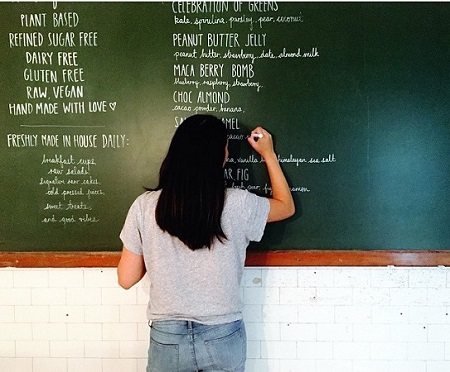 PLANT BASED
REFINED SUGAR FREE
DAIRY FREE
GLUTEN FREE
RAW, VEGAN
HAND MADE WITH LOVE ♡
FRESHLY MADE IN HOUSE DAILY:
breakfast cups,
raw salads,
signature raw cakes,
cold pressed juices,
sweet treats,
and good vibes
CELEBRATION OF GREENS
kale, spirulina, parsley, pear, coconut
PEANUT BUTTER JELLY
peanut butter, strawberry, date, almond milk
MACA BERRY BOMB
blueberry, raspberry, strawberry,
CHOC ALMOND
cacao powder, banana,
MEL
cacao
vanilla bean, himalayan sea salt
FIG